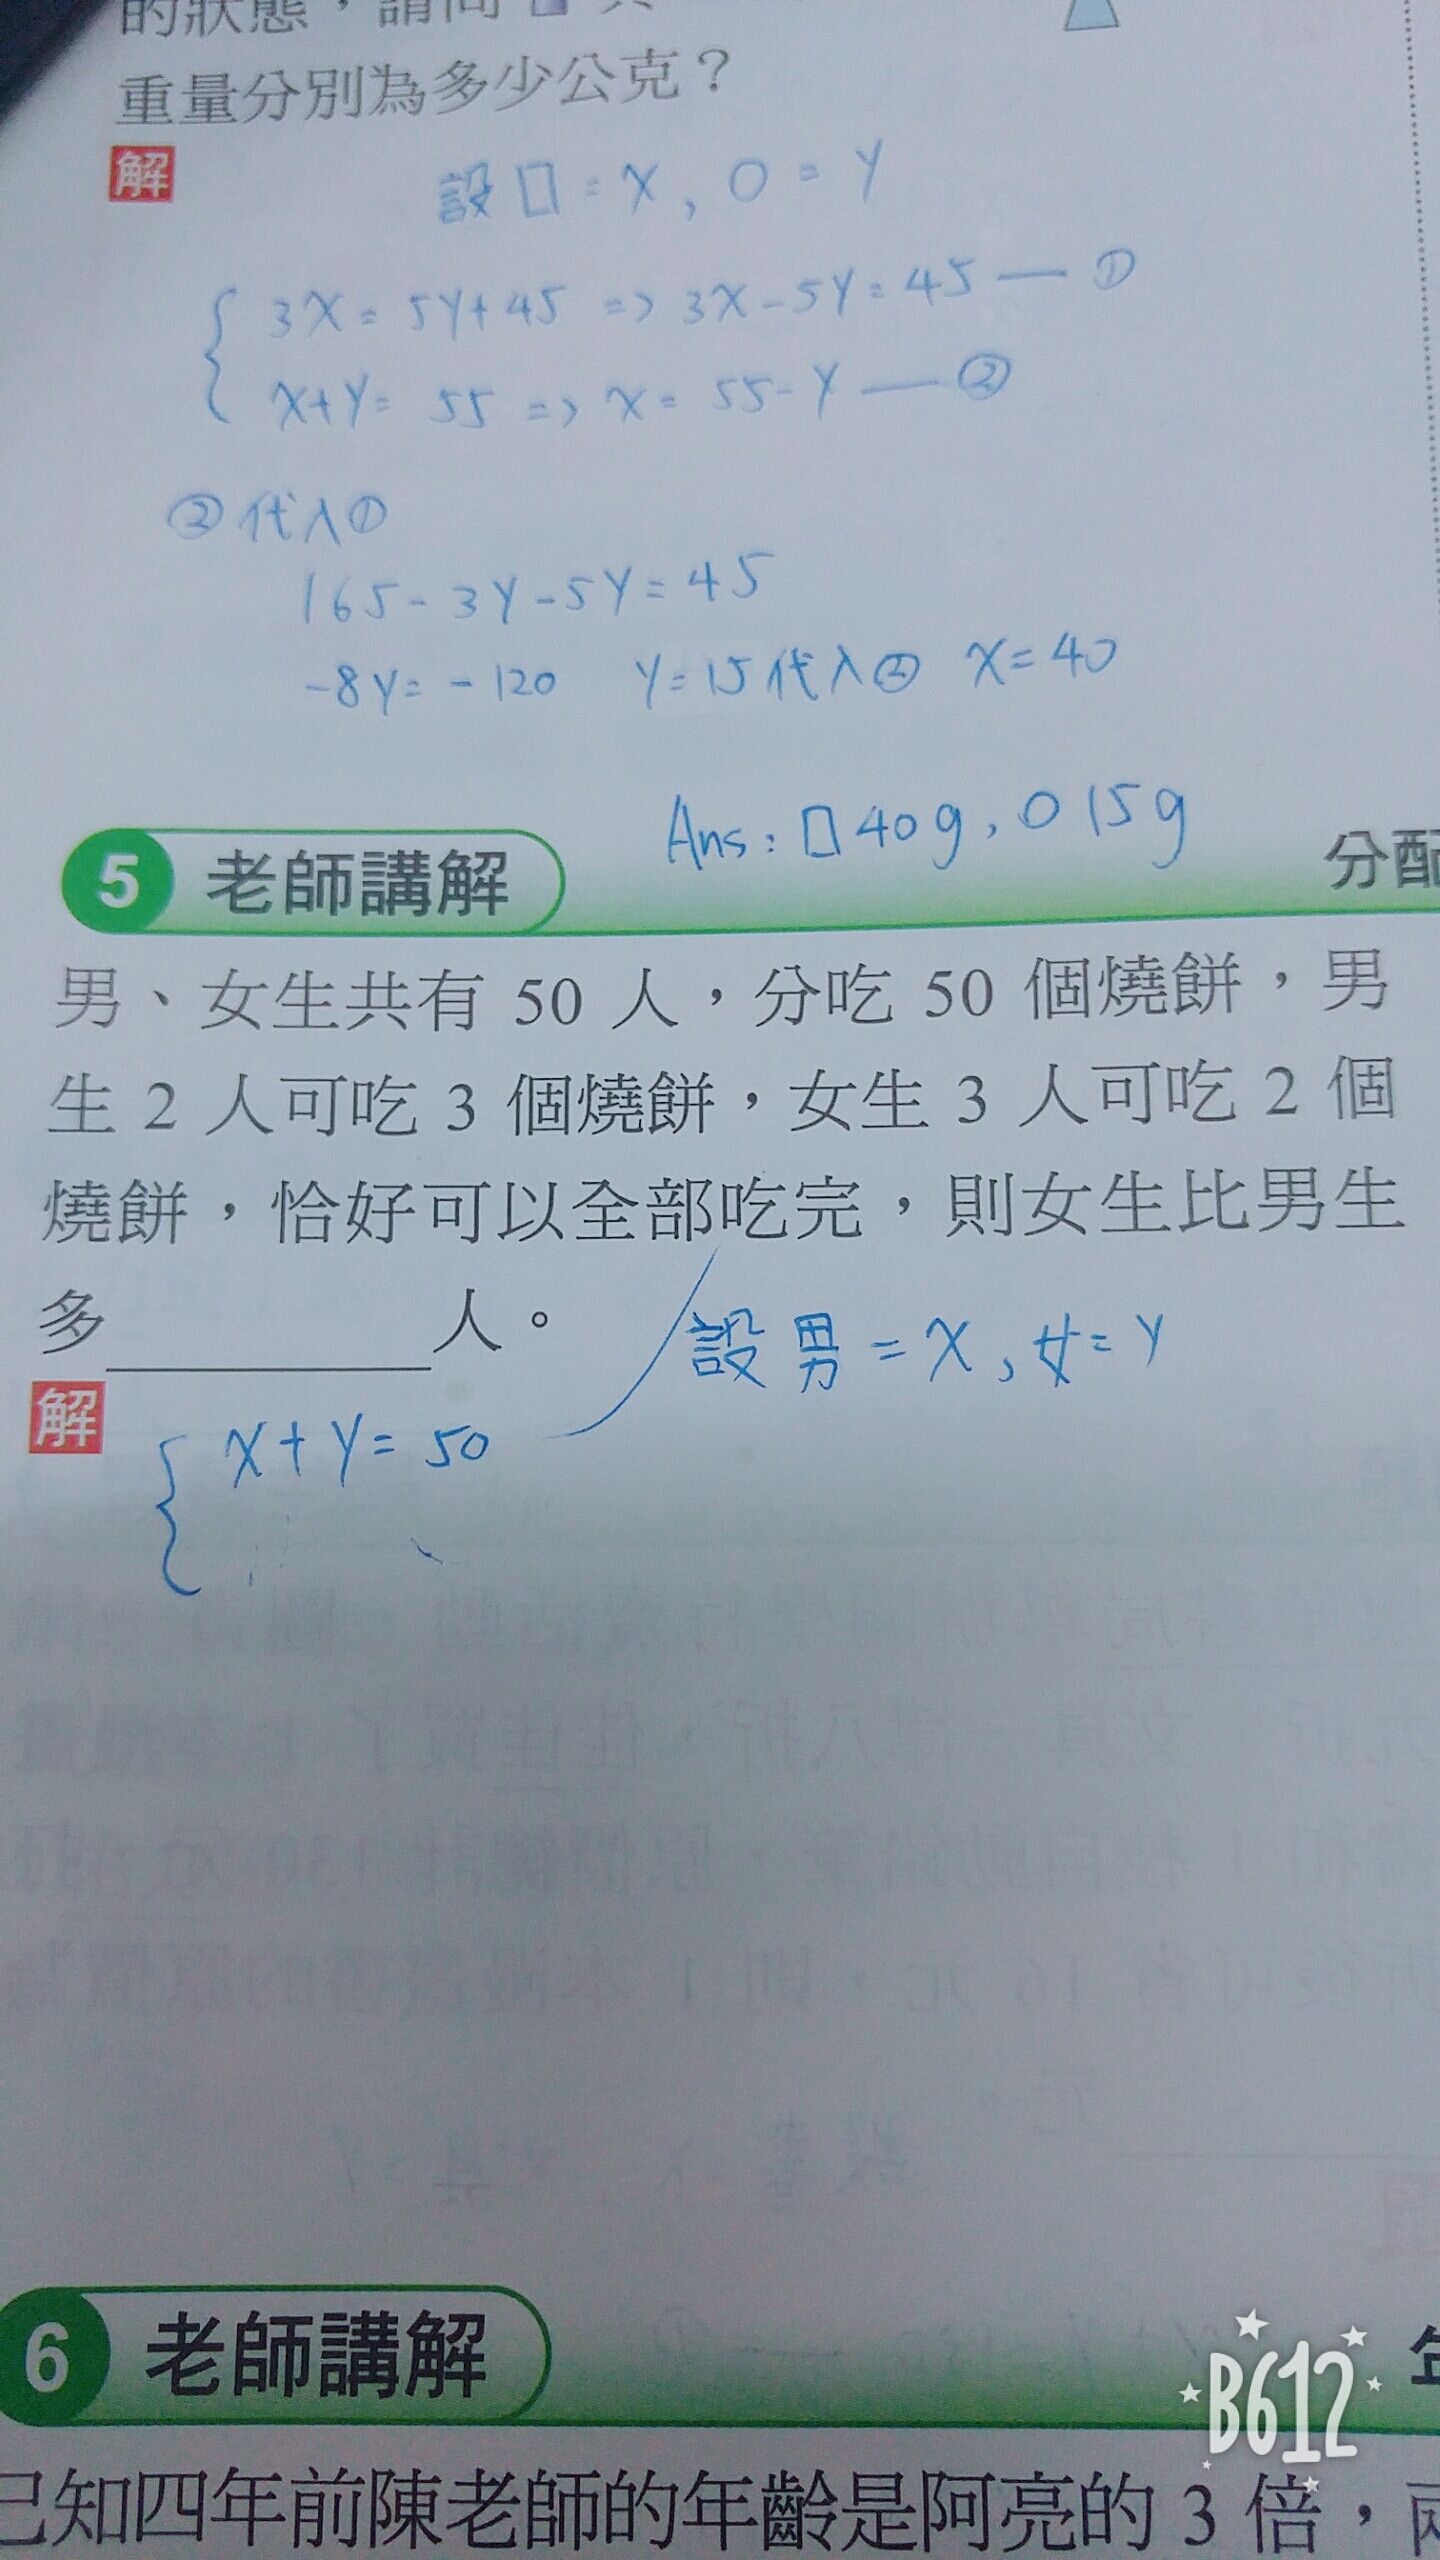 的狀態，請問
重量分別為多少公克？
解
設□=X, O=Y
3X=5Y+45 => 3X-5Y=45 — ①
X+Y=55 => X=55-Y — ②
②代入①
165-3Y-5Y=45
-8Y=-120 Y=15代入② X=40
Ans:□40g, O 15g
5 老師講解 分配
男、女生共有 50 人，分吃 50 個燒餅，男
生 2 人可吃 3 個燒餅，女生 3 人可吃 2 個
燒餅，恰好可以全部吃完，則女生比男生
多＿＿＿＿人。
設男=X, 女=Y
解
X+Y=50
6 老師講解
B612
已知四年前陳老師的年齡是阿亮的 3 倍，兩